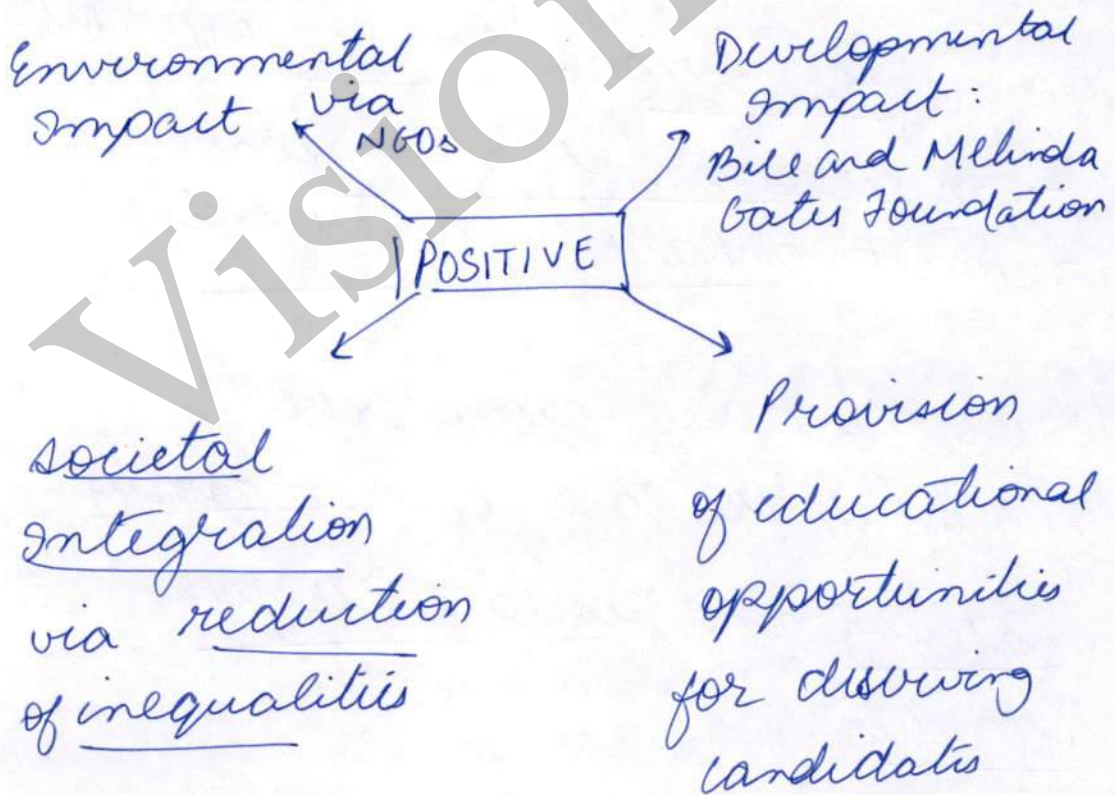 Environmental
Impact via
NGOs
Developmental
Impact:
Bill and Melinda
Gates Foundation
POSITIVE
Societal
Integration
via reduction
of inequalities
Provision
of educational
opportunities
for deserving
candidates
Vision